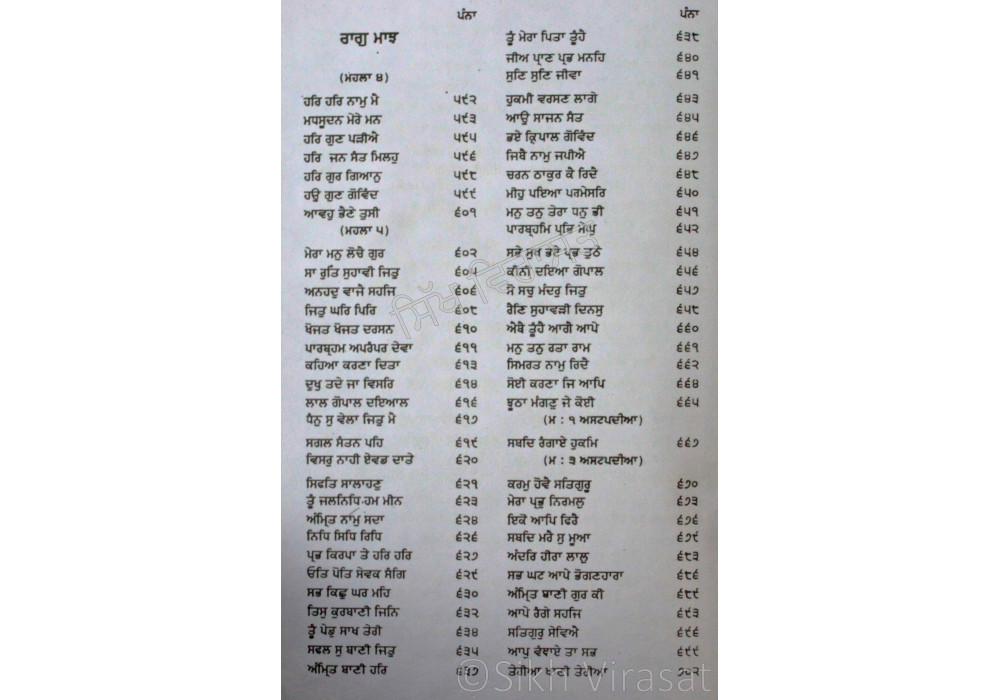 ਪੰਨਾ
ਰਾਗੁ ਮਾਝ
(ਮਹਲਾ ੪)
ਹਰਿ ਹਰਿ ਨਾਮੁ ਮੈ ੫੯੨
ਮਧਸੂਦਨ ਮੇਰੇ ਮਨ ੫੯੩
ਹਰਿ ਗੁਣ ਪੜੀਐ ੫੯੫
ਹਰਿ ਜਨ ਸੰਤ ਮਿਲਹੁ ੫੯੬
ਹਰਿ ਗੁਰ ਗਿਆਨੁ ੫੯੮
ਹਉ ਗੁਣ ਗੋਵਿੰਦ ੫੯੯
ਆਵਹੁ ਭੈਣੇ ਤੁਸੀ ੬੦੧
(ਮਹਲਾ ੫)
ਮੇਰਾ ਮਨੁ ਲੋਚੈ ਗੁਰ ੬੦੨
ਸਾ ਰੁਤਿ ਸੁਹਾਵੀ ਜਿਤੁ ੬੦੫
ਅਨਹਦੁ ਵਾਜੈ ਸਹਜਿ ੬੦੬
ਜਿਤੁ ਘਰਿ ਪਿਰਿ ੬੦੮
ਖੋਜਤ ਖੋਜਤ ਦਰਸਨ ੬੧੦
ਪਾਰਬ੍ਰਹਮ ਅਪਰੰਪਰ ਦੇਵਾ ੬੧੧
ਕਹਿਆ ਕਰਣਾ ਦਿਤਾ ੬੧੩
ਦੁਖੁ ਤਦੇ ਜਾ ਵਿਸਰਿ ੬੧੪
ਲਾਲ ਗੋਪਾਲ ਦਇਆਲ ੬੧੬
ਧੰਨੁ ਸੁ ਵੇਲਾ ਜਿਤੁ ਮੈ ੬੧੭
ਸਗਲ ਸੰਤਨ ਪਹਿ ੬੧੯
ਵਿਸਰੁ ਨਾਹੀ ਏਵਡ ਦਾਤੇ ੬੨੦
ਸਿਫਤਿ ਸਾਲਾਹਣੁ ੬੨੧
ਤੂੰ ਜਲਨਿਧਿ ਹਮ ਮੀਨ ੬੨੩
ਅੰਮ੍ਰਿਤ ਨਾਮੁ ਸਦਾ ੬੨੪
ਨਿਧਿ ਸਿਧਿ ਰਿਧਿ ੬੨੬
ਪ੍ਰਭ ਕਿਰਪਾ ਤੇ ਹਰਿ ਹਰਿ ੬੨੭
ਓਤਿ ਪੋਤਿ ਸੇਵਕ ਸੰਗਿ ੬੨੯
ਸਭ ਕਿਛੁ ਘਰ ਮਹਿ ੬੩੦
ਤਿਸੁ ਕੁਰਬਾਣੀ ਜਿਨਿ ੬੩੨
ਤੂੰ ਪੇਡੁ ਸਾਖ ਤੇਰੀ ੬੩੪
ਸਫਲ ਸੁ ਬਾਣੀ ਜਿਤੁ ੬੩੫
ਅੰਮ੍ਰਿਤ ਬਾਣੀ ਹਰਿ ੬੩੭
ਪੰਨਾ
ਤੂੰ ਮੇਰਾ ਪਿਤਾ ਤੂੰਹੈ ੬੩੮
ਜੀਅ ਪ੍ਰਾਣ ਪ੍ਰਭ ਮਨਹਿ ੬੪੦
ਸੁਣਿ ਸੁਣਿ ਜੀਵਾ ੬੪੧
ਹੁਕਮੀ ਵਰਸਣ ਲਾਗੇ ੬੪੩
ਆਉ ਸਾਜਨ ਸੰਤ ੬੪੫
ਭਏ ਕ੍ਰਿਪਾਲ ਗੋਵਿੰਦ ੬੪੬
ਜਿਥੈ ਨਾਮੁ ਜਪੀਐ ੬੪੭
ਚਰਨ ਠਾਕੁਰ ਕੈ ਰਿਦੈ ੬੪੮
ਮੀਹੁ ਪਇਆ ਪਰਮੇਸਰਿ ੬੫੦
ਮਨੁ ਤਨੁ ਤੇਰਾ ਧਨੁ ਭੀ ੬੫੧
ਪਾਰਬ੍ਰਹਮਿ ਪ੍ਰਭਿ ਮੇਘੁ ੬੫੨
ਸਭੇ ਸੁਖ ਭਏ ਪ੍ਰਭ ਤੁਠੇ ੬੫੪
ਕੀਨੀ ਦਇਆ ਗੋਪਾਲ ੬੫੬
ਸੋ ਸਚੁ ਮੰਦਰੁ ਜਿਤੁ ੬੫੭
ਰੈਣਿ ਸੁਹਾਵੜੀ ਦਿਨਸੁ ੬੫੮
ਐਥੈ ਤੂੰਹੈ ਆਗੈ ਆਪੇ ੬੬੦
ਮਨੁ ਤਨੁ ਰਤਾ ਰਾਮ ੬੬੧
ਸਿਮਰਤ ਨਾਮੁ ਰਿਦੈ ੬੬੨
ਸੋਈ ਕਰਣਾ ਜਿ ਆਪਿ ੬੬੪
ਝੂਠਾ ਮੰਗਣੁ ਜੇ ਕੋਈ ੬੬੫
(ਮ : ੧ ਅਸਟਪਦੀਆ)
ਸਬਦਿ ਰੰਗਾਏ ਹੁਕਮਿ ੬੬੭
(ਮ : ੩ ਅਸਟਪਦੀਆ)
ਕਰਮੁ ਹੋਵੈ ਸਤਿਗੁਰੂ ੬੭੦
ਮੇਰਾ ਪ੍ਰਭੁ ਨਿਰਮਲੁ ੬੭੩
ਇਕੋ ਆਪਿ ਫਿਰੈ ੬੭੬
ਸਬਦਿ ਮਰੈ ਸੁ ਮੁਆ ੬੭੯
ਅੰਦਰਿ ਹੀਰਾ ਲਾਲੁ ੬੮੩
ਸਭ ਘਟ ਆਪੇ ਭੋਗਣਹਾਰਾ ੬੮੬
ਅੰਮ੍ਰਿਤ ਬਾਣੀ ਗੁਰ ਕੀ ੬੮੯
ਆਪੇ ਰੰਗੇ ਸਹਜਿ ੬੯੩
ਸਤਿਗੁਰੁ ਸੇਵਿਐ ੬੯੬
ਆਪੁ ਵੰਞਾਏ ਤਾ ਸਭ ੬੯੯
ਤੇਰੀਆ ਖਾਣੀ ਤੇਰੀਆ ੭੦੨
ਸਿੱਖ ਵਿਰਾਸਤ
©Sikh Virasat